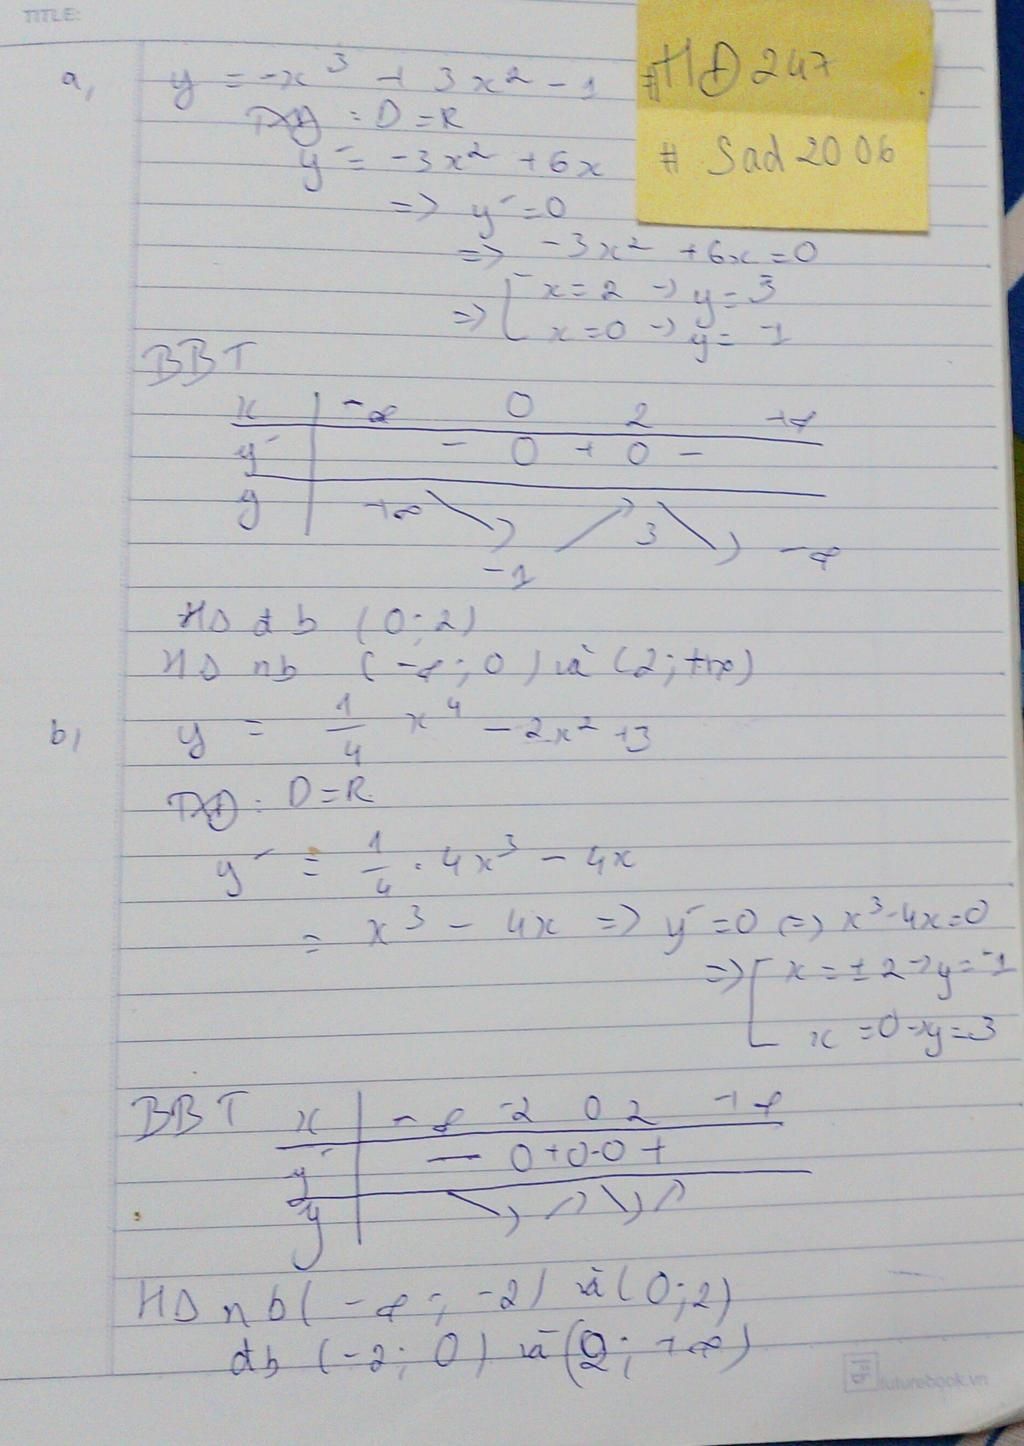 TITLE:
a, y = -x³ + 3x² - 1
#HĐ247
# Sad2006
TXĐ : D = R
y' = -3x² + 6x
=> y' = 0
=> -3x² + 6x = 0
=> [ x = 2 -> y = 3
x = 0 -> y = -1
BBT
x | -∞ 0 2 +∞
y' | - 0 + 0 -
y | +∞ ↘ -1 ↗ 3 ↘ -∞
HS đb (0; 2)
HS nb (-∞; 0) và (2; +∞)
b, y = 1/4 x⁴ - 2x² + 3
TXĐ : D = R
y' = 1/4 . 4x³ - 4x
= x³ - 4x => y' = 0 (=> x³ - 4x = 0
=> [ x = ± 2 -> y = -1
x = 0 -> y = 3
BBT x | -∞ -2 0 2 +∞
y' | - 0 + 0 - 0 +
y | ↘ ↗ ↘ ↗
HS nb (-∞; -2) và (0; 2)
đb (-2; 0) và (2; +∞)
futurebook.vn